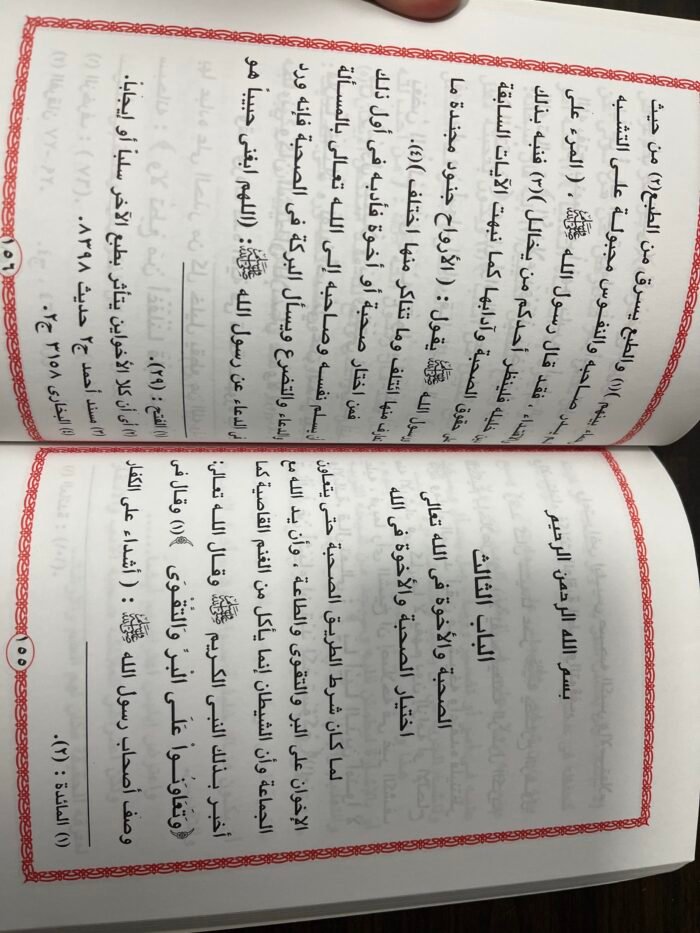 بسم الله الرحمن الرحيم
الباب الثالث
الصحبة والأخوة فى الله تعالى
اختيار الصحبة والأخوة فى الله
لما كان شرط الطريق الصحبة حتى يتعاون
الإخوان على البر والتقوى والطاعة ، وأن يد الله مع
الجماعة وأن الشيطان إنما يأكل من الغنم القاصية كما
أخبر بذلك النبى الكريم ﷺ وقال الله تعالى:
﴿وَتَعَاوَنُواْ عَلَى الْبرِّ وَالتَّقْوَى ﴾(١) وقال فى
وصف أصحاب رسول الله ﷺ : ( أشداء على الكفار
(١) المائدة : (٢).
١٥٥
بينهم )(١) والطبع يسرق من الطبع(٢) من حيث
صاحبه والنفوس مجبولة على التشبه
والاقتداء ، فقد قال رسول الله ﷺ ، ( المرء على
دين خليله فلينظر أحدكم من يخالل )(٣) فنبه بذلك
على حقوق الصحبة وآدابها كما نبهت الآيات السابقة
ورسول الله ﷺ يقول : ( الأرواح جنود مجندة ما
تعارف منها ائتلف وما تناكر منها اختلف )(٤).
فمن اختار صحبة أو أخوة فأدبه فى أول ذلك
أن يسلم نفسه وصاحبه إلى الله تعالى بالمسألة
والدعاء والتضرع ويسأل البركة فى الصحبة فإنه ورد
فى الدعاء عن رسول الله ﷺ : (اللهم ابغنى حبيباً هو
(١) الفتح : (٢٩).
(٢) أى أن كلا الأخواين يتأثر بطبع الآخر سلباً أو إيجاباً.
(٣) مسند أحمد ج٢ حديث ٨٣٩٨.
(٤) البخارى ٣١٥٨ ج٢.
١٥٦